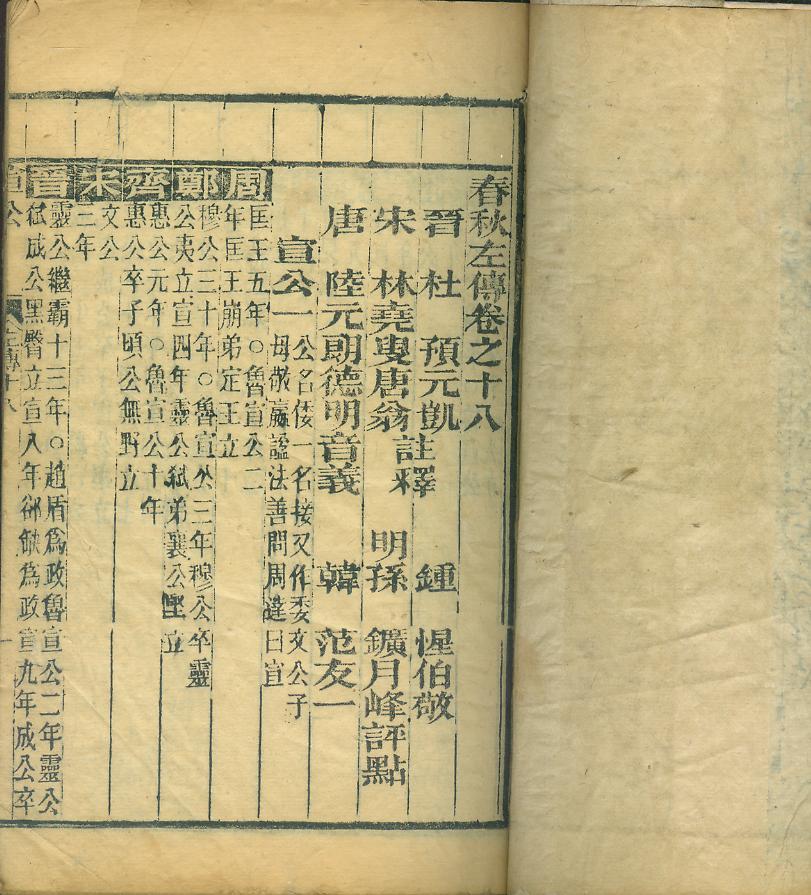 春秋左傳卷之十八
晉 杜 預元凱 註釋 鍾 惺伯敬
宋 林堯叟唐翁 明孫 鑛月峰評點
唐 陸元朗德明音義 韓 范友一
宣公一 公名倭一名接又作委文公子
母敬嬴諡法善問周達曰宣
周 匡王五年○魯宣公二
年匡王崩弟定王立
鄭 穆公三十年○魯宣公三年穆公卒靈
公夷立宣四年靈公弒弟襄公堅立
齊 惠公元年○魯宣公十年
惠公卒子頃公無野立
宋 文公
三年
晉 靈公繼霸十三年○趙盾爲政魯宣公二年靈公
弒成公黑臀立宣八年郤缺爲政宣九年成公卒
左傳十八
一